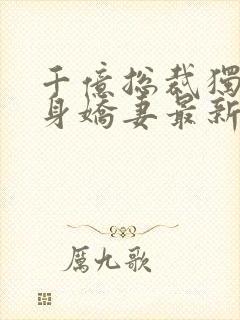 千億總裁獨
身嬌妻最新
厲九歌